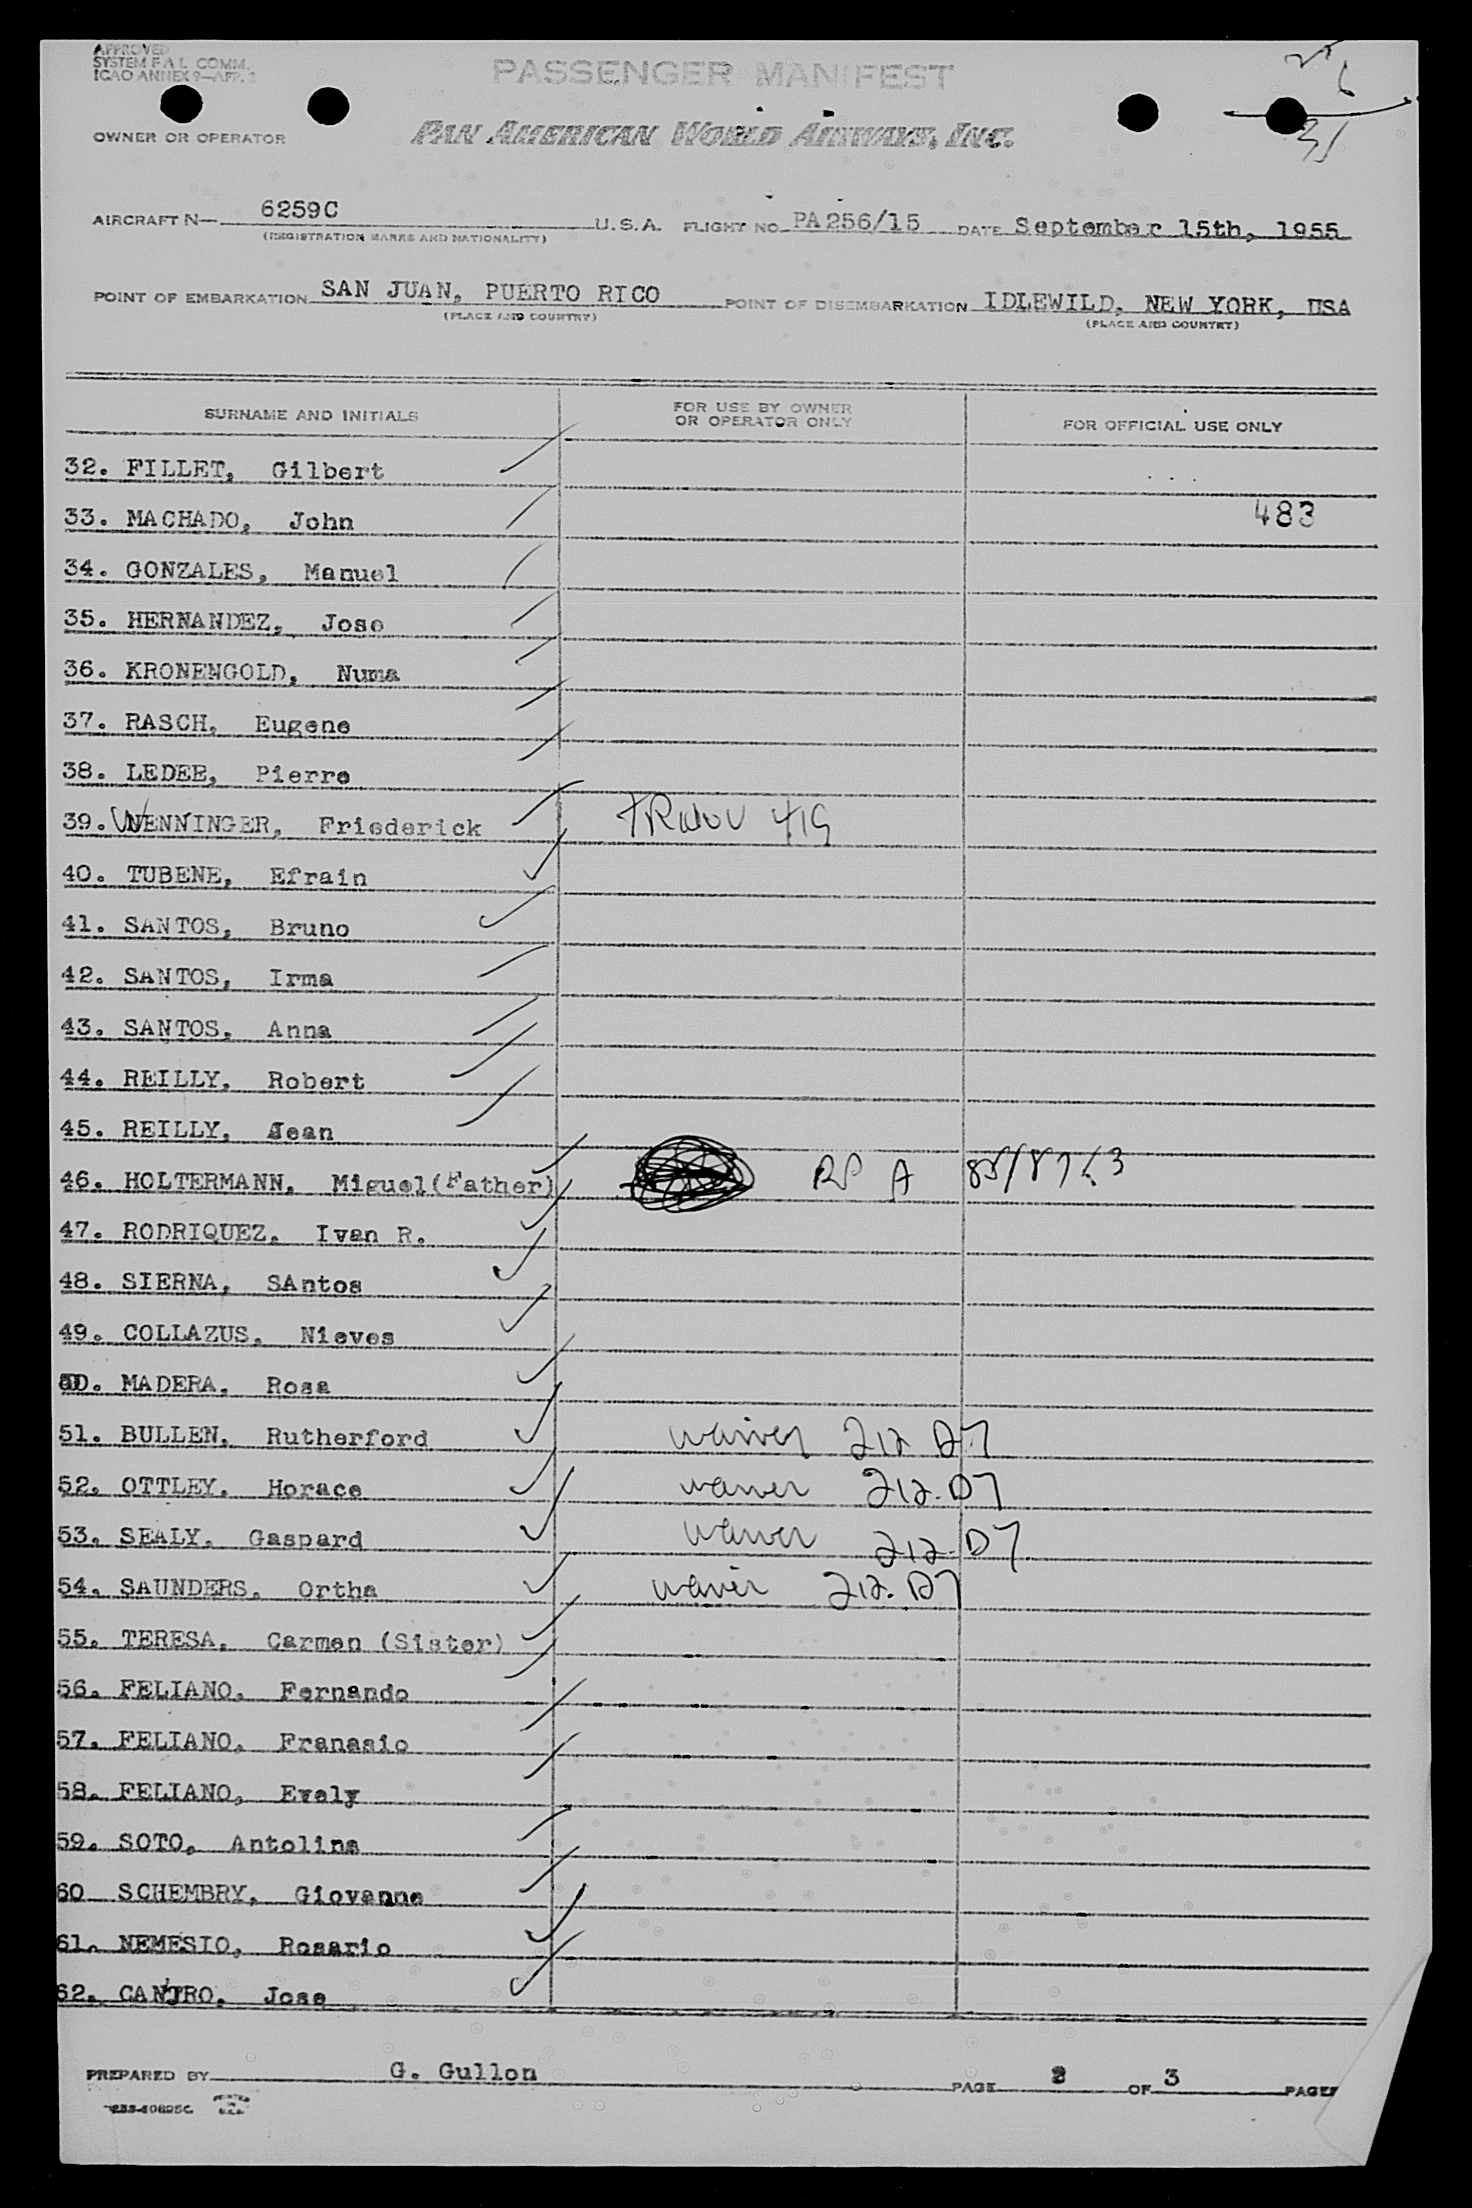 APPROVED
SYSTEM F A L COMM.
ICAO ANNEX 9—APP. 2
PASSENGER MANIFEST
OWNER OR OPERATOR PAN AMERICAN WORLD AIRWAYS, INC.
AIRCRAFT N— 6259C U.S.A. FLIGHT NO. PA256/15 DATE September 15th, 1955
(REGISTRATION MARKS AND NATIONALITY)
POINT OF EMBARKATION SAN JUAN, PUERTO RICO POINT OF DISEMBARKATION IDLEWILD, NEW YORK, USA
(PLACE AND COUNTRY) (PLACE AND COUNTRY)
SURNAME AND INITIALS FOR USE BY OWNER OR OPERATOR ONLY FOR OFFICIAL USE ONLY
32. FILLET, Gilbert
33. MACHADO, John 483
34. GONZALES, Manuel
35. HERNANDEZ, Jose
36. KRONENGOLD, Numa
37. RASCH, Eugene
38. LEDEE, Pierre
39. WENNINGER, Friederick
40. TUBENE, Efrain
41. SANTOS, Bruno
42. SANTOS, Irma
43. SANTOS, Anna
44. REILLY, Robert
45. REILLY, Jean
46. HOLTERMANN, Miguel(Father)
47. RODRIQUEZ, Ivan R.
48. SIERNA, SAntos
49. COLLAZUS, Nieves
50. MADERA, Rosa
51. BULLEN, Rutherford waiver 212 D7
52. OTTLEY, Horace waiver 212.D7
53. SEALY, Gaspard waiver 212 D7
54. SAUNDERS, Ortha waiver 212.D7
55. TERESA, Carmen (Sister)
56. FELIANO, Fernando
57. FELIANO, Franasio
58. FELIANO, Evely
59. SOTO, Antolina
60 SCHEMBRY, Giovanne
61. NEMESIO, Rosario
62. CANTRO, Jose
PREPARED BY G. Gullon PAGE 2 OF 3 PAGES